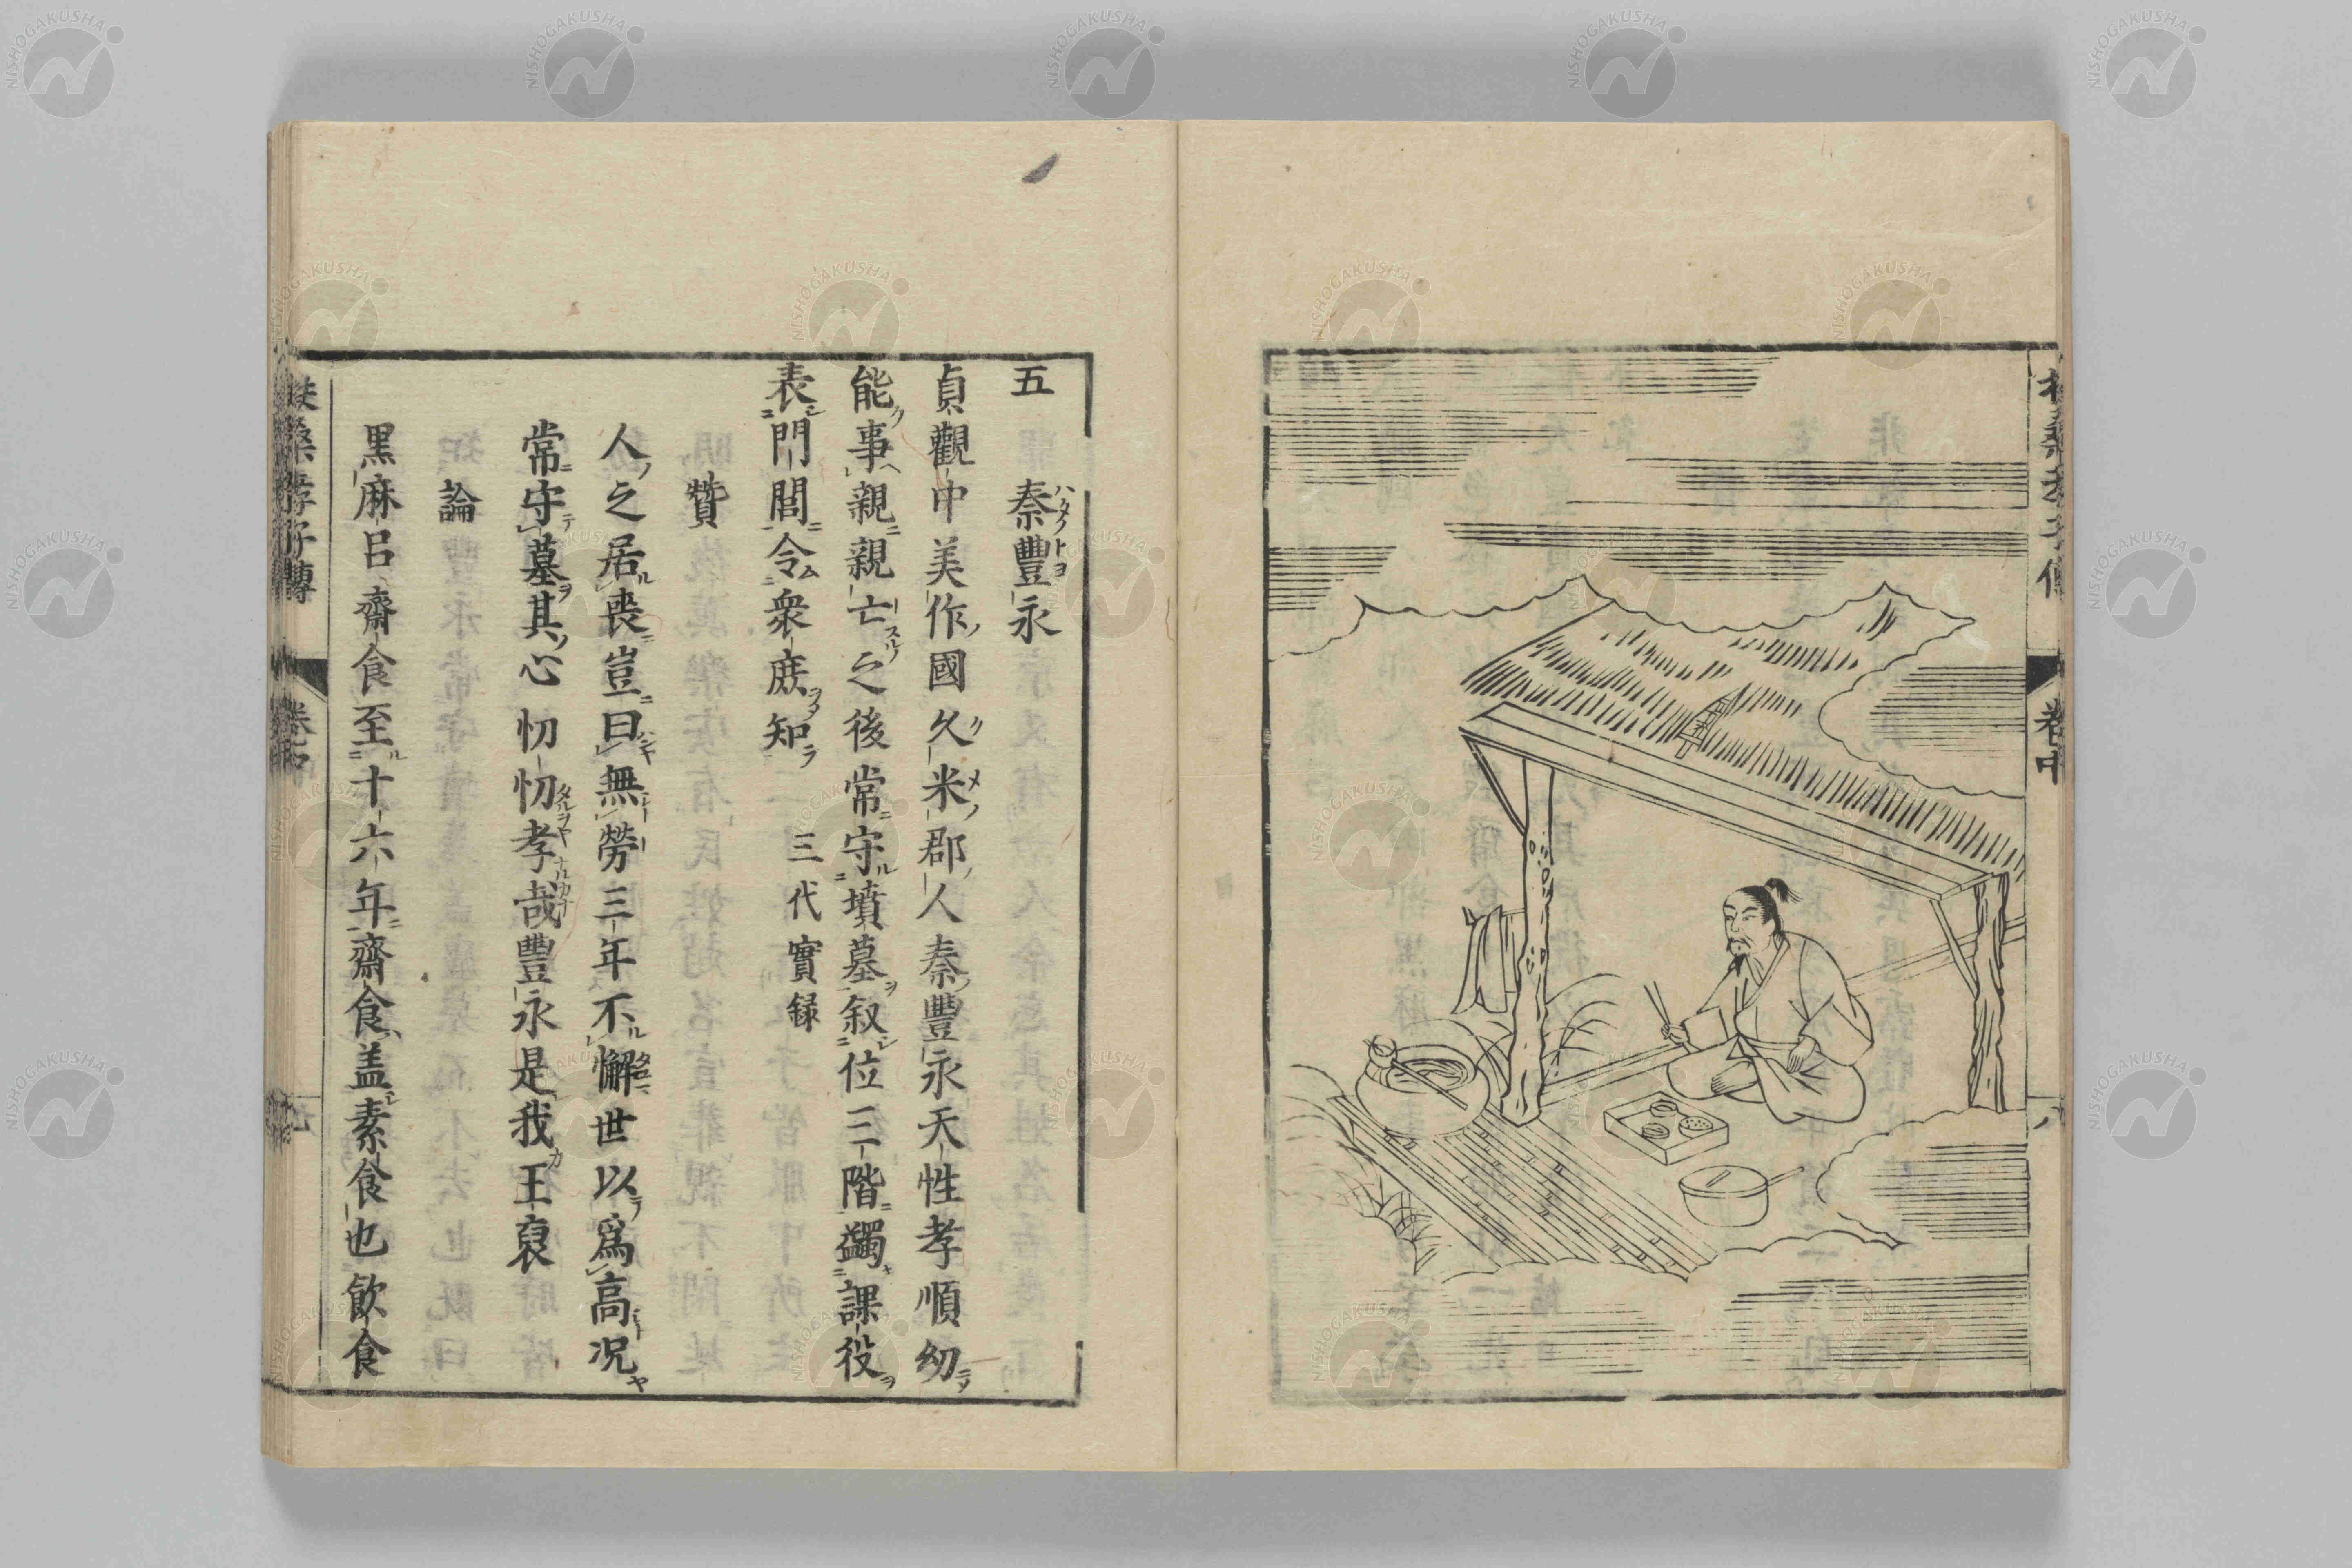 五　秦豐永
貞觀中美作國久米郡人秦豐永天性孝順幼
能事親親亡之後常守墳墓叙位三階蠲課役
表門閭令衆庶知　三代實録
贊
人之居喪豈曰無勞三年不懈世以爲高况
常守墓其心忉忉孝哉豐永是我王裒
論
黒麻呂齋食至十六年齋食盖素食也飲食
扶桑孝子傳　卷中
卷中　八
NISHOGAKUSHA